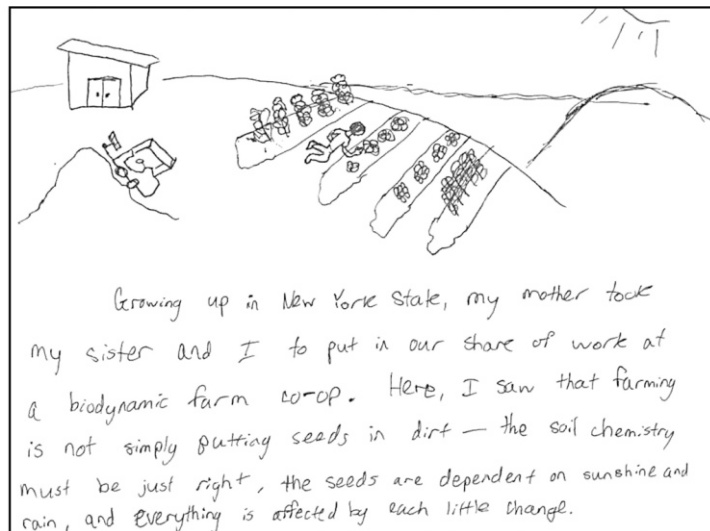 Growing up in New York State, my mother took
my sister and I to put in our share of work at
a biodynamic farm co-op. Here, I saw that farming
is not simply putting seeds in dirt — the soil chemistry
must be just right, the seeds are dependent on sunshine and
rain, and everything is affected by each little change.